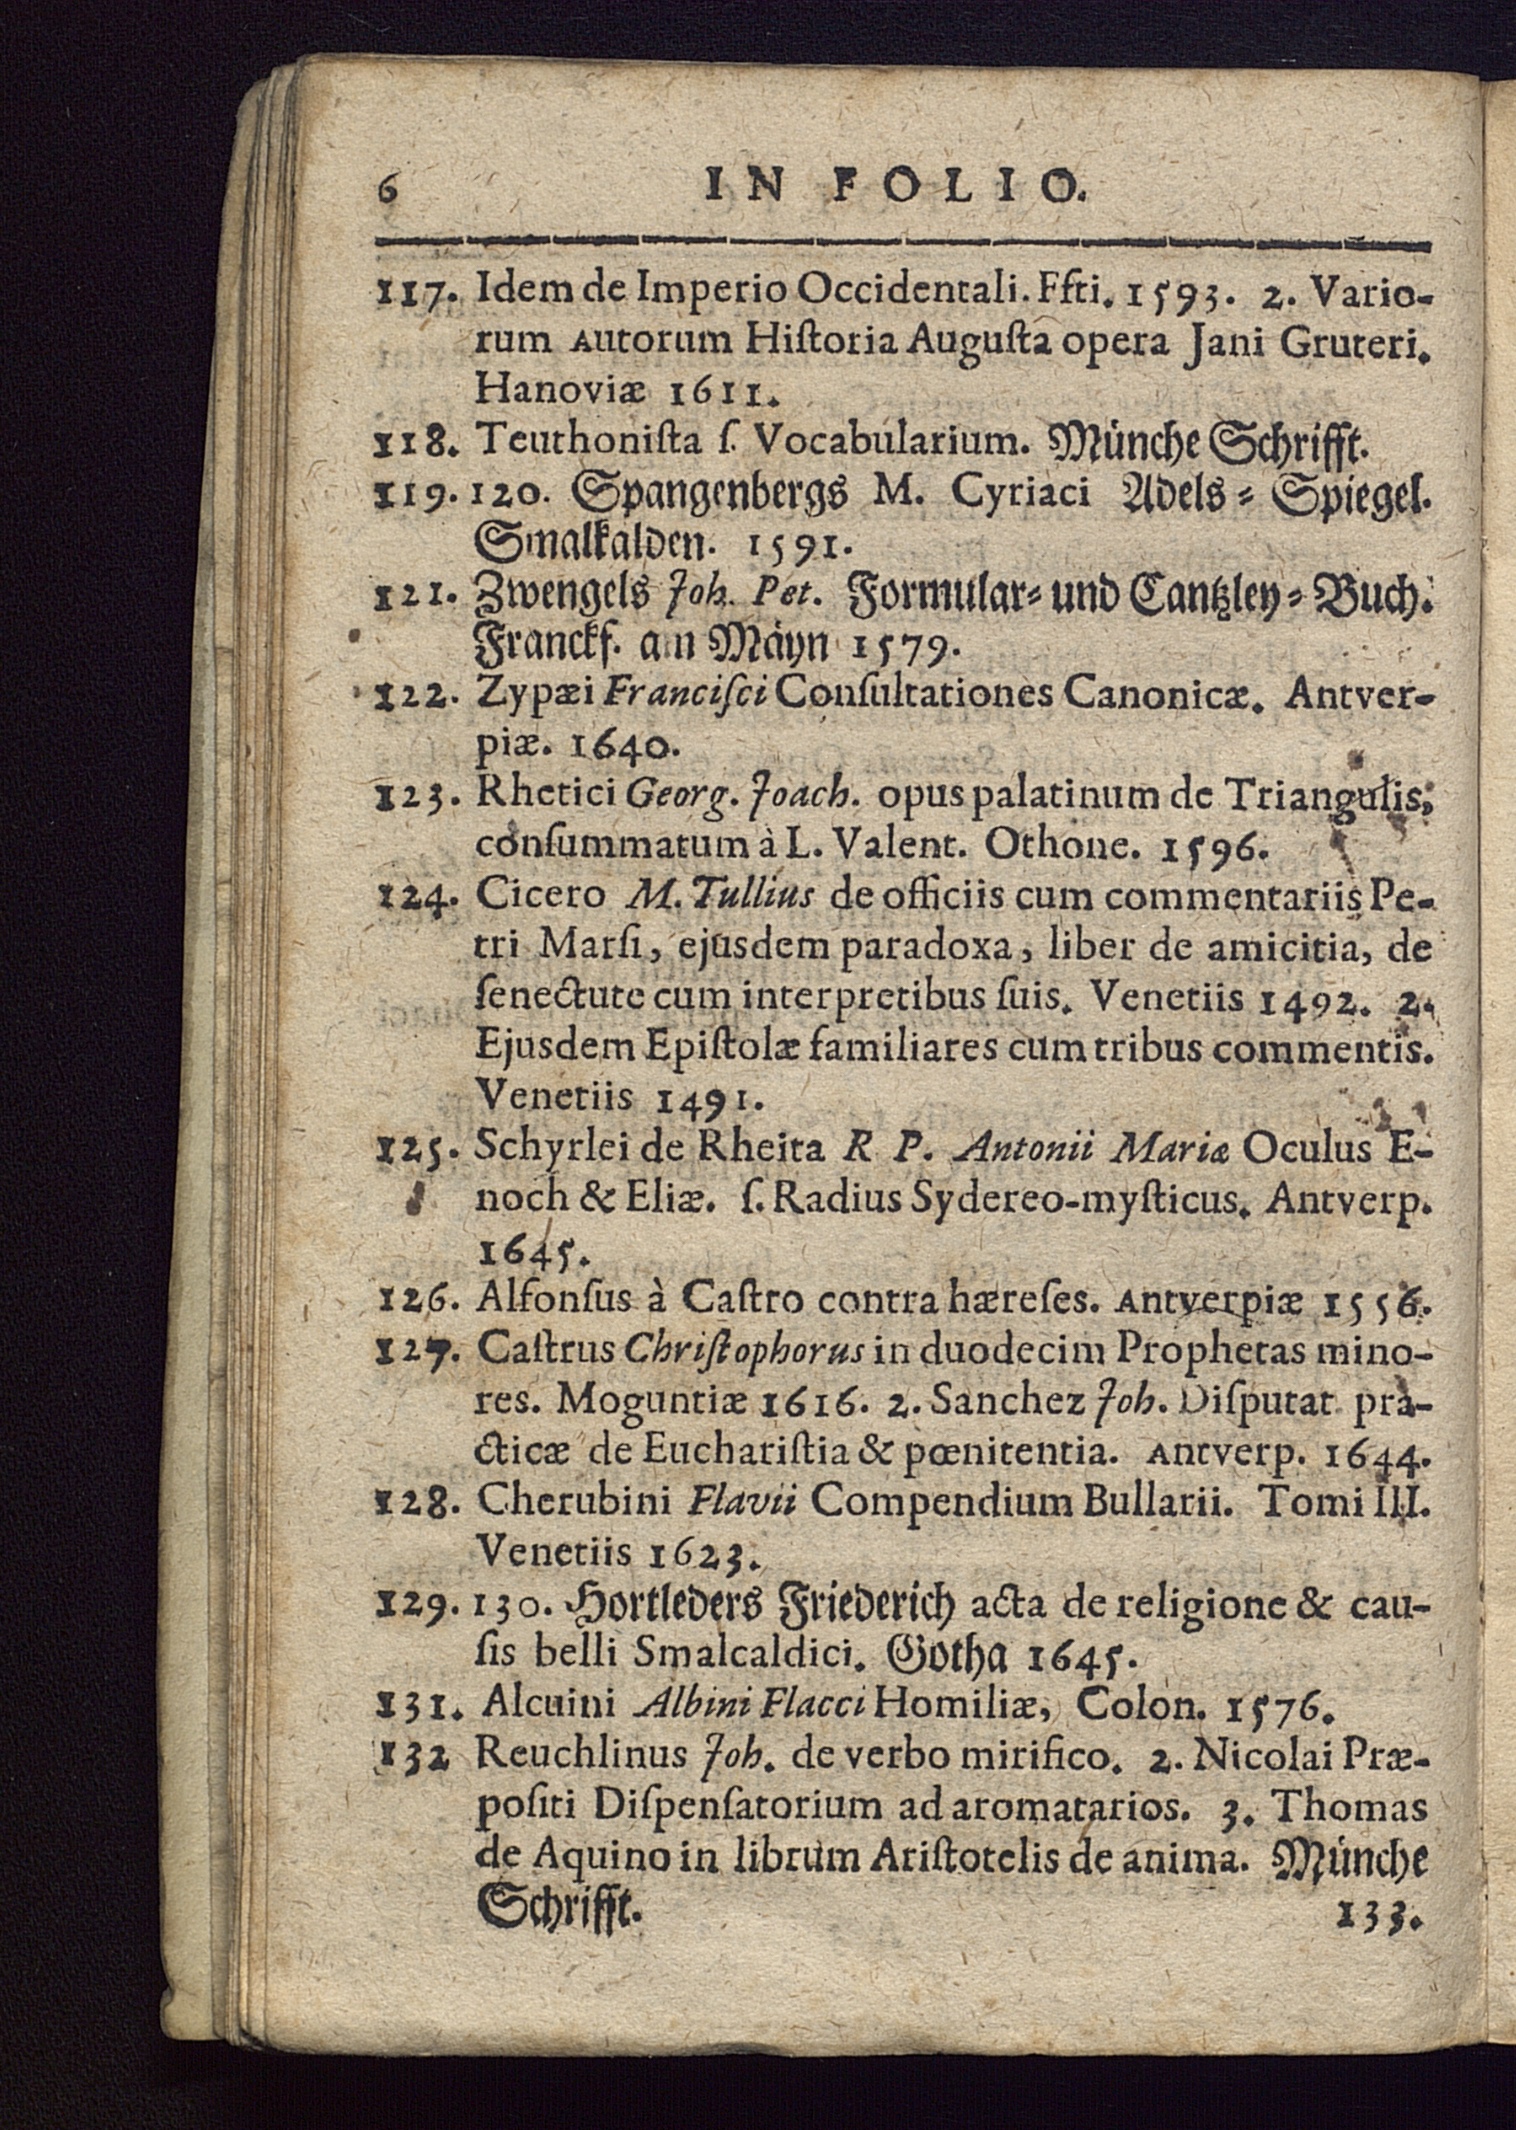 6 IN FOLIO.
117. Idem de Imperio Occidentali. Ffti. 1593. 2. Vario-
rum Autorum Hiſtoria Auguſta opera Jani Gruteri.
Hanoviæ 1611.
118. Teuthoniſta ſ. Vocabularium. Münche Schrifft.
119. 120. Spangenbergs M. Cyriaci Adels-Spiegel.
Smalkalden. 1591.
121. Zwengels Joh. Pet. Formular- und Cantzley-Buch.
Franckf. am Mäyn 1579.
122. Zypæi Franciſci Conſultationes Canonicæ. Antver-
piæ. 1640.
123. Rhetici Georg. Joach. opus palatinum de Triangulis,
conſummatum à L. Valent. Othone. 1596.
124. Cicero M. Tullius de officiis cum commentariis Pe-
tri Marſi, ejusdem paradoxa, liber de amicitia, de
ſenectute cum interpretibus ſuis. Venetiis 1492. 2.
Ejusdem Epiſtolæ familiares cum tribus commentis.
Venetiis 1491.
125. Schyrlei de Rheita R P. Antonii Mariæ Oculus E-
noch & Eliæ. ſ. Radius Sydereo-myſticus. Antverp.
1645.
126. Alfonſus à Caſtro contra hæreſes. Antverpiæ 1556.
127. Caſtrus Chriſtophorus in duodecim Prophetas mino-
res. Moguntiæ 1616. 2. Sanchez Joh. Diſputat. pra-
cticæ de Euchariſtia & pœnitentia. Antverp. 1644.
128. Cherubini Flavii Compendium Bullarii. Tomi III.
Venetiis 1623.
129. 130. Hortleders Friederich acta de religione & cau-
ſis belli Smalcaldici. Gotha 1645.
131. Alcuini Albini Flacci Homiliæ, Colon. 1576.
132 Reuchlinus Joh. de verbo mirifico. 2. Nicolai Præ-
poſiti Diſpenſatorium ad aromatarios. 3. Thomas
de Aquino in librum Ariſtotelis de anima. Münche
Schrifft. 133.